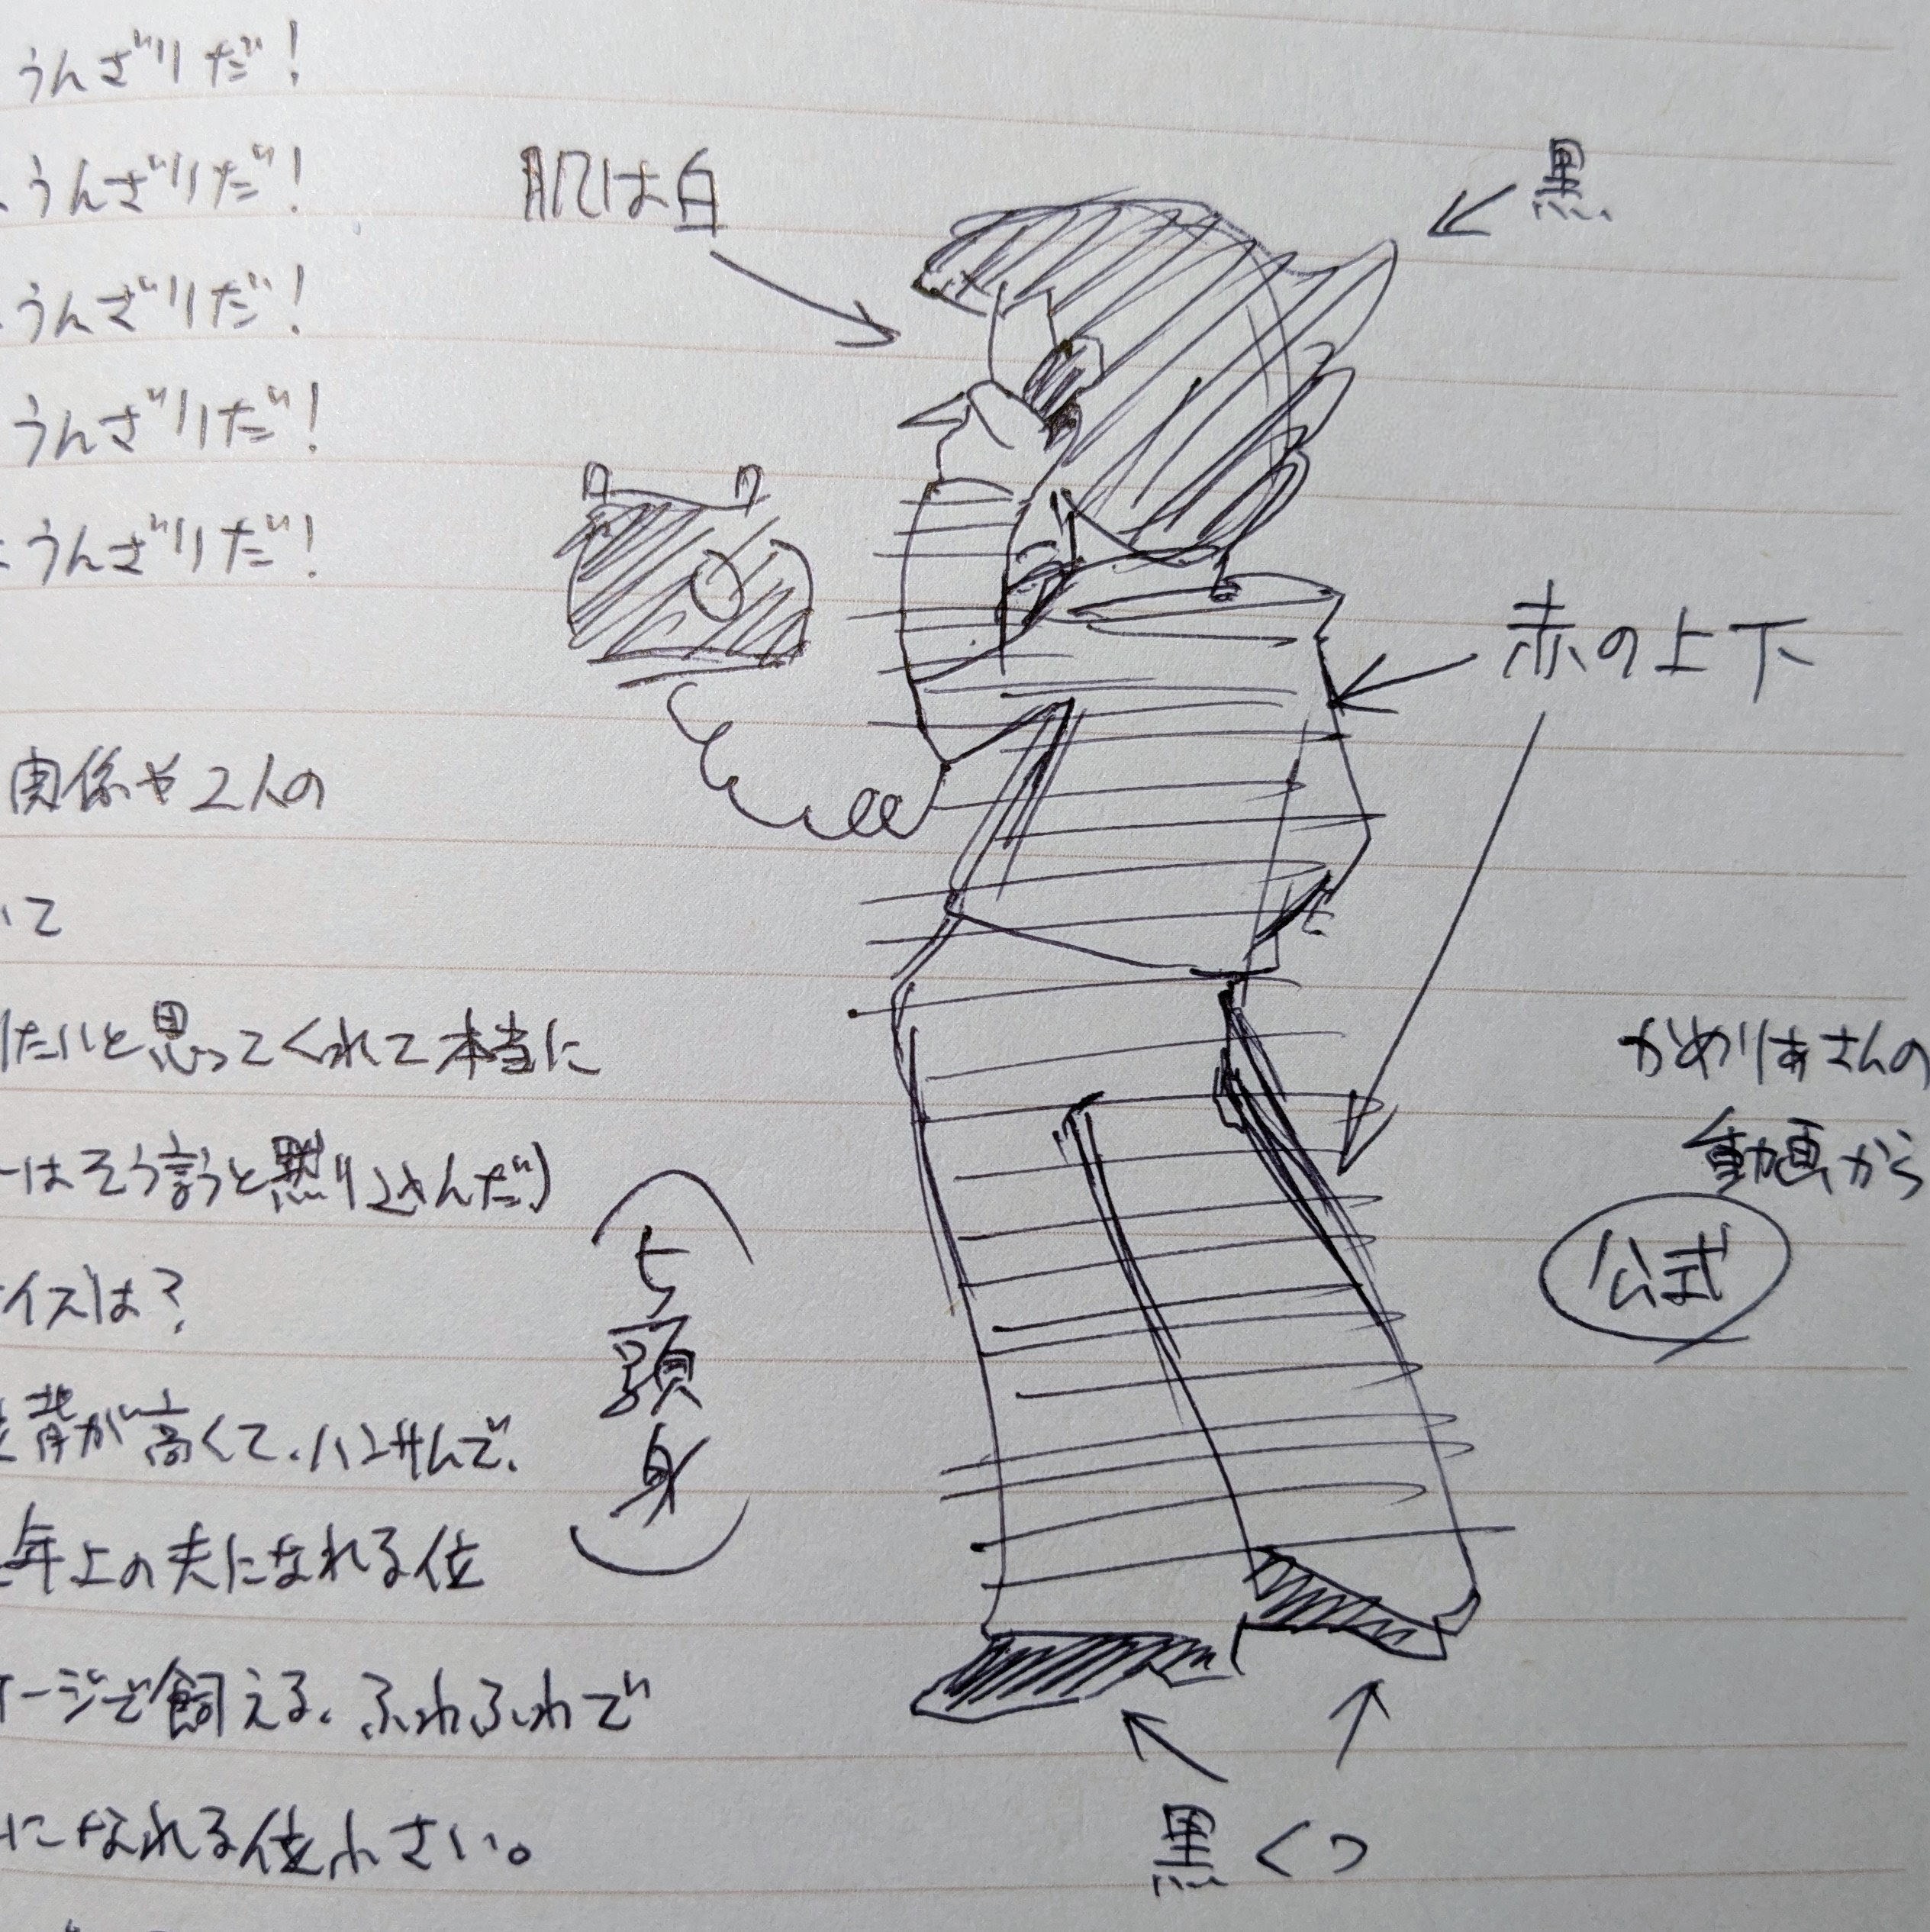 うんざりだ!
うんざりだ!
うんざりだ!
うんざりだ!
うんざりだ!
関係や2人の
いて
りたいと思ってくれて本当に
ーはそう言うと黙り込んだ)
イズは?
背が高くて、ハンサムで、
年上の夫になれる位
ケージで飼える、ふわふわで
になれる位小さい。
肌は白
黒
赤の上下
かめりあさんの
動画から
公式
(七頭身)
黒くつ